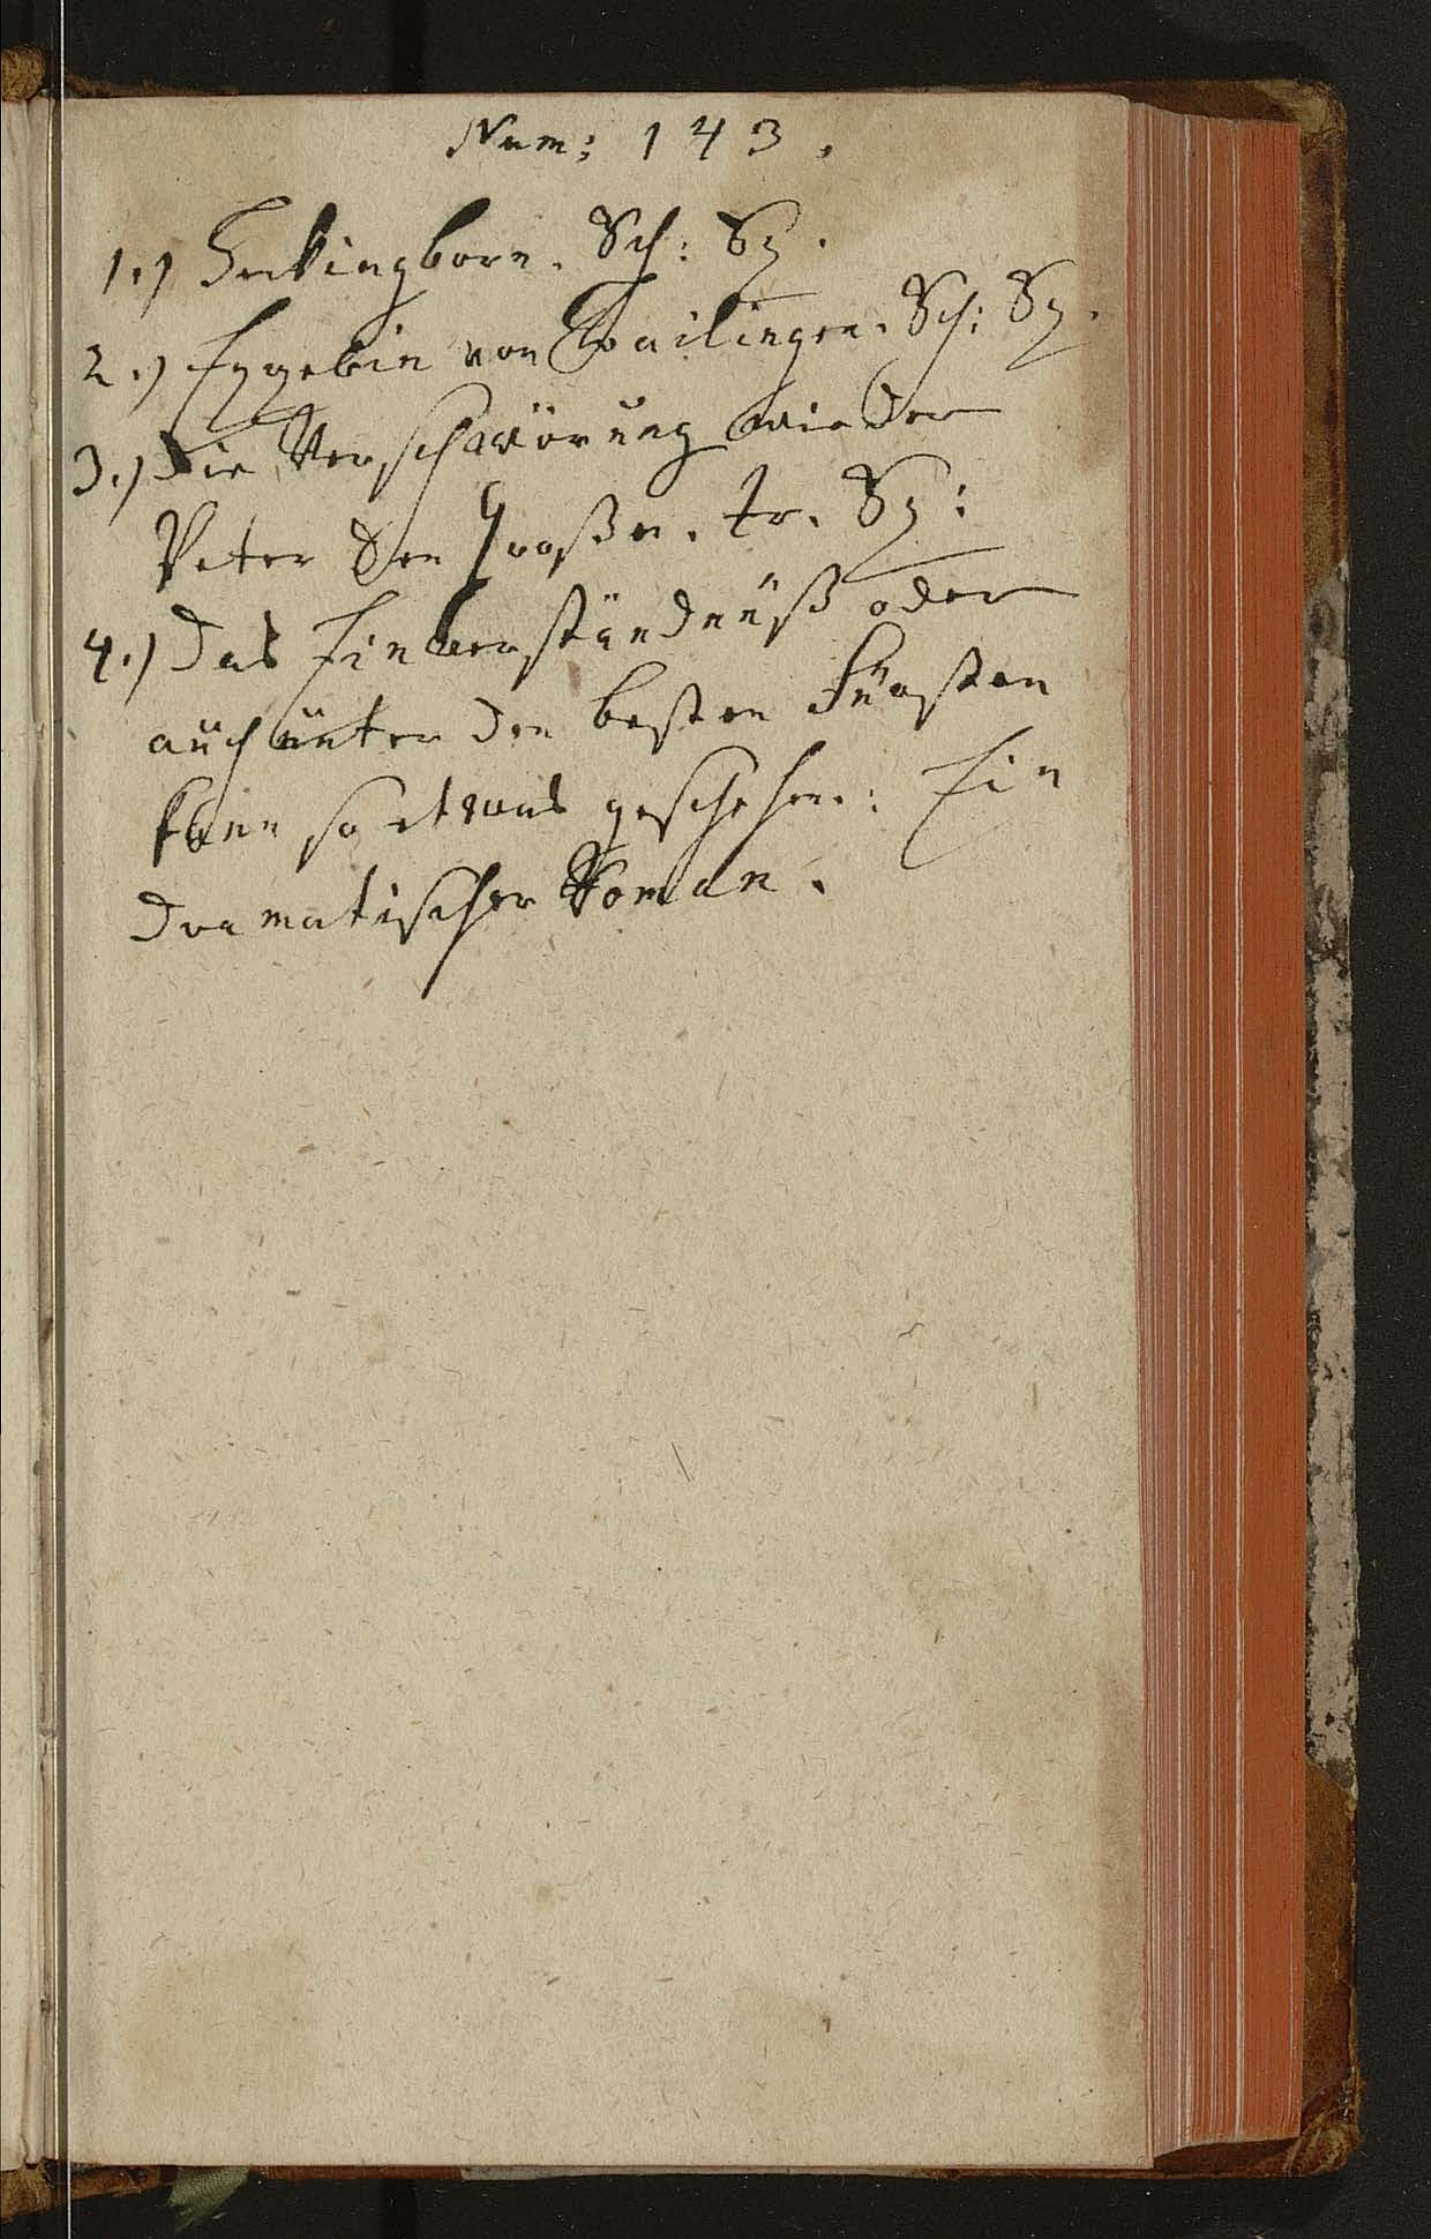 Num: 143.
1.) Inkingborn. Sch: Sp.
2.) Eggebin von Wailingen. Sch: Sp.
3.) Die Verschwörung wieder
Peter den Großen. tr. Sp:
4.) Das Einverständnüß oder
auch unter den besten Fürsten
kann so etwas geschehen: Ein
dramatischer Roman.